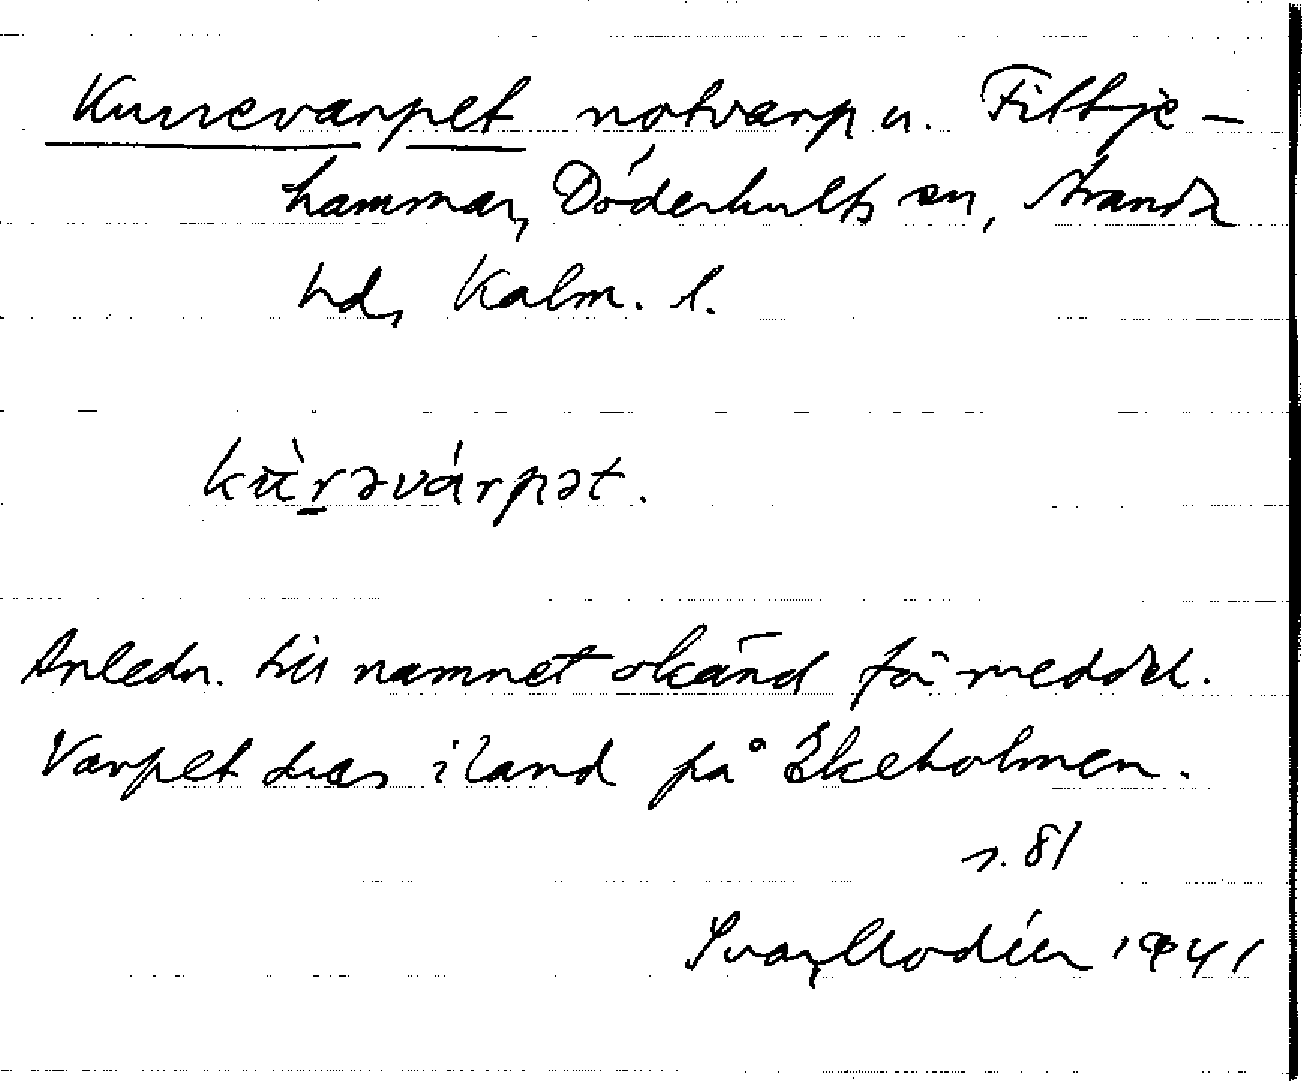 Kurrevarpet notvarp u. Filtje-
hammar, Döderhults sn, Stranda
hd, Kalm. l.
kùrəvárpət.
Anledn. till namnet okänd för meddel.
Varpet dras i land på Ekeholmen.
s. 81
Ivar Modéer 1941